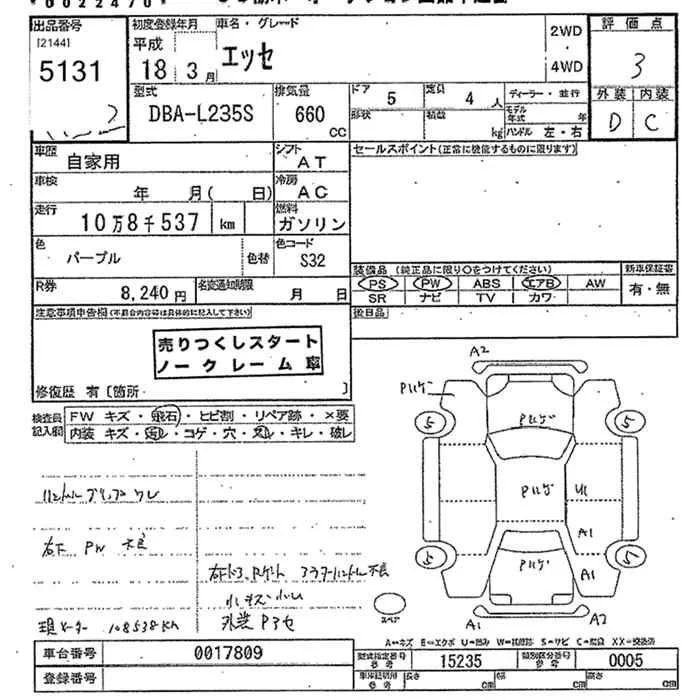 出品番号 初度登録年月 車名・グレード 2WD 評価点
[2144] 平成 エッセ 3
5131 18 3月 4WD
型式 排気量 ドア 5 定員 4人 ディーラー・並行 外装 内装
DBA-L235S 660 CC 形状 積載 kg モデル年式 年 D C
ハンドル 左・右
車歴 自家用 シフト AT セールスポイント(正常に機能するものに限ります)
車検 年 月( 日) 冷房 AC
走行 10万8千537 km 燃料 ガソリン
色 パープル 色替 色コード S32
装備品 (純正品に限り○をつけてください) 新車保証書
R券 8,240円 名変通知期限 月 日 PS PW ABS エアB AW 有・無
SR ナビ TV カワ
注意事項申告欄(不具合内容等は具体的に記入して下さい) 後日品
売りつくしスタート
ノークレーム車
修復歴 有〔箇所 〕
検査員記入欄 FW キズ・飛石・ヒビ割・リペア跡・×要
内装 キズ・汚レ・コゲ・穴・スレ・キレ・破レ
A2
Pハゲ
5 Pハゲ 5
Pハゲ U1
A1
5 Pハゲ A1 5
A1 A2
スペア
ハンドル グリップ ワレ
右下 PW 不良
右下ドア、Pゲート アウターハンドル不良
小キズ小ヘコ
現メーター 108538Km 外装Pヤセ
A=キズ E=エクボ U=凹み W=補修跡 S=サビ C=腐食 XX=交換済
車台番号 0017809 型式指定番号 参考 15235 類別区分番号 参考 0005
登録番号 車庫証明用 参考 長さ cm 幅 cm 高さ cm